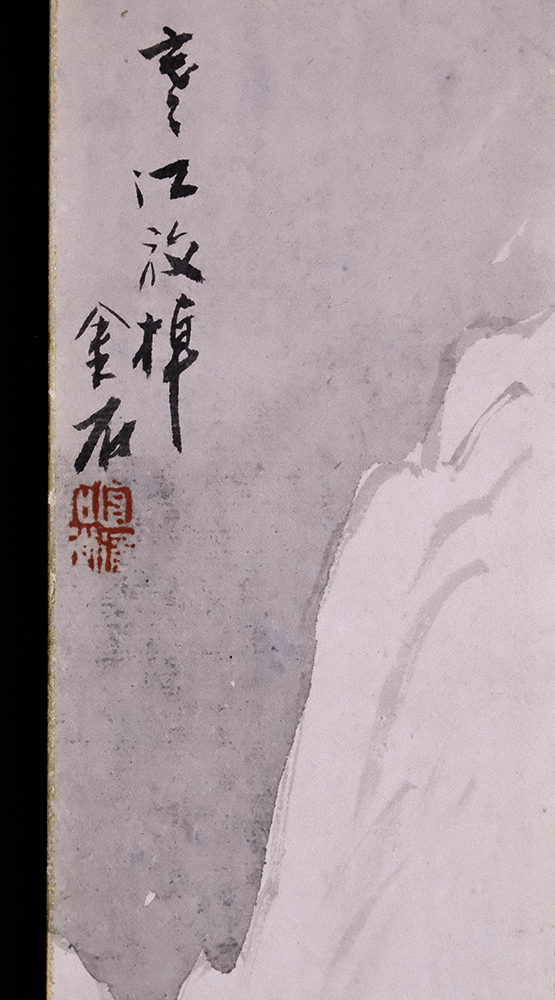 寒江放棹
金石